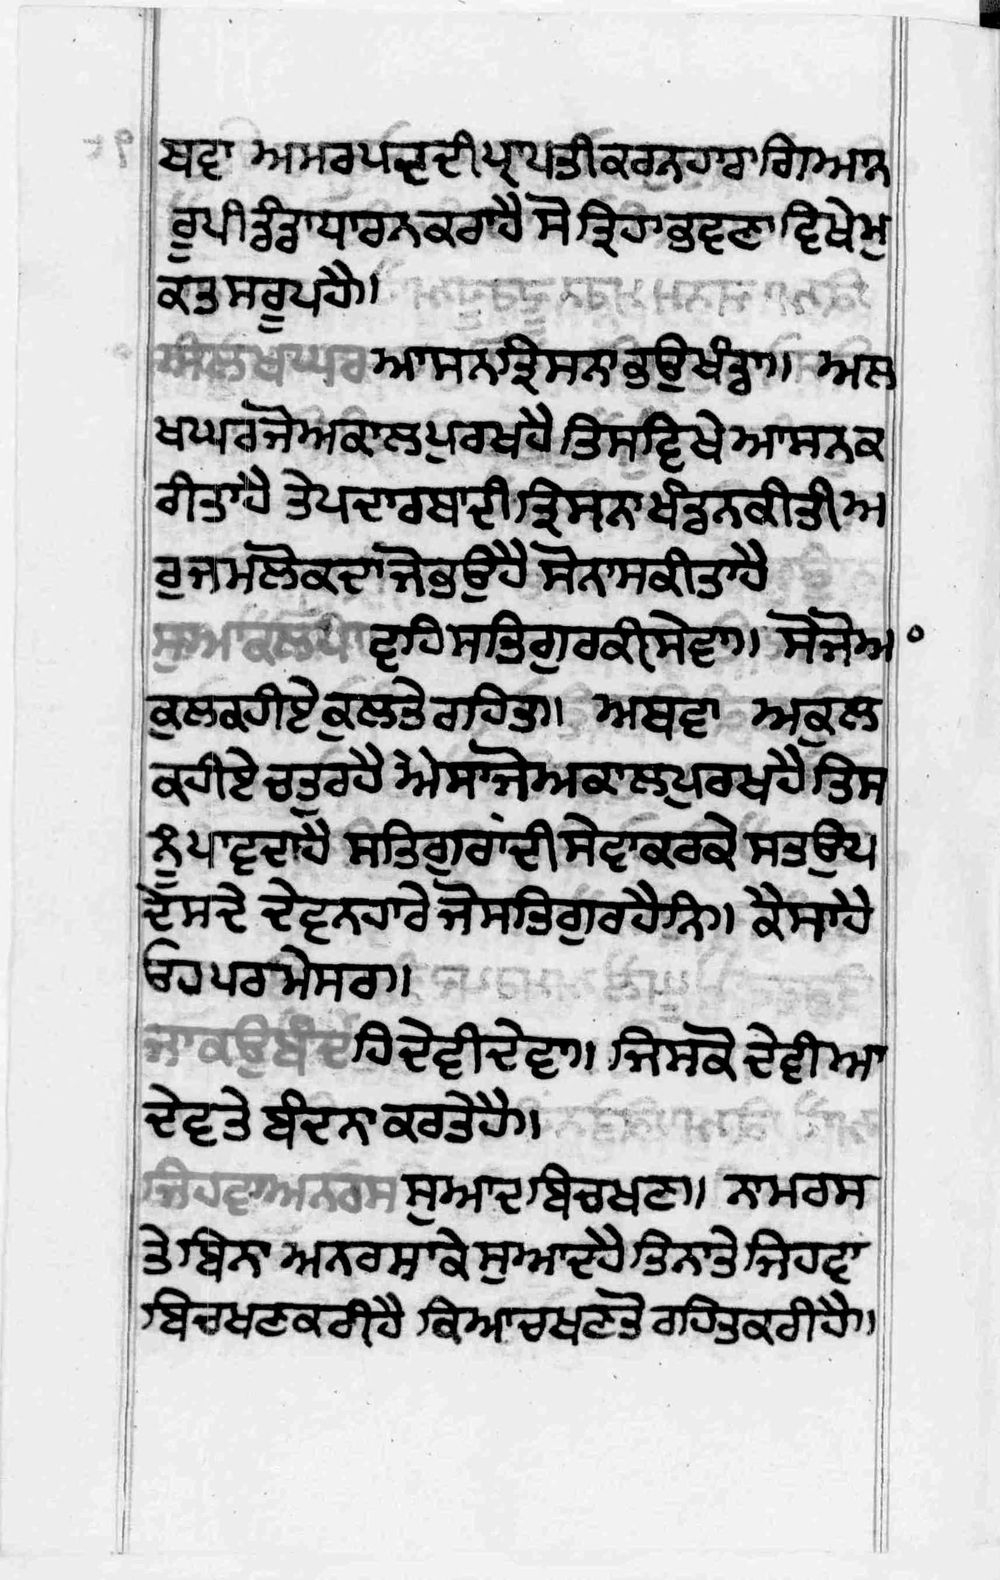 ਬਵਾ ਅਮਰਪਦ ਦੀ ਪ੍ਰਾਪਤੀ ਕਰਨਹਾਰਾ ਗਿਆਨ
ਰੂਪੀ ਡੰਡਾ ਧਾਰਨ ਕਰਾ ਹੈ ਸੋ ਤ੍ਰਿਹਾ ਭਵਣਾ ਵਿਖੇ ਮੁ
ਕਤ ਸਰੂਪ ਹੈ॥
ਅਲਖ ਘਰ ਆਸਨ ਤ੍ਰਿਸਨਾ ਭਉ ਖੰਡਾ॥ ਅਲ
ਖ ਘਰ ਜੋ ਅਕਾਲ ਪੁਰਖ ਹੈ ਤਿਸ ਵਿਖੇ ਆਸਨ ਕ
ਰੀਤਾ ਹੈ ਤੇ ਪਦਾਰਥਾ ਦੀ ਤ੍ਰਿਸਨਾ ਖੰਡਨ ਕੀਤੀ ਅ
ਰੁ ਜਮ ਲੋਕ ਦਾ ਜੋ ਭਉ ਹੈ ਸੋ ਨਾਸ ਕੀਤਾ ਹੈ
ਸੁ ਅਕਲ ਪਾਵਹਿ ਸਤਿਗੁਰ ਕੀ ਸੇਵਾ॥ ਸੋ ਜੋ ਅ
ਕੁਲ ਕਹੀਏ ਕੁਲ ਤੇ ਰਹਿਤ॥ ਅਥਵਾ ਅਕੁਲ
ਕਹੀਏ ਚਤੁਰ ਹੈ ਐਸਾ ਜੋ ਅਕਾਲ ਪੁਰਖ ਹੈ ਤਿਸ
ਨੂੰ ਪਾਵਦਾ ਹੈ ਸਤਿਗੁਰਾਂ ਦੀ ਸੇਵਾ ਕਰਕੇ ਸਤ ਉਪ
ਦੇਸ ਦੇ ਦੇਵਨਹਾਰੇ ਜੋ ਸਤਿਗੁਰ ਹੈਨਿ॥ ਕੈਸਾ ਹੈ
ਓਹ ਪਰਮੇਸਰ॥
ਜਾ ਕਉ ਬੰਦਹਿ ਦੇਵੀ ਦੇਵਾ॥ ਜਿਸਕੋ ਦੇਵੀਆ
ਦੇਵਤੇ ਬੰਦਨਾ ਕਰਤੇ ਹੈ॥
ਜਿਹਵਾ ਅਨਰਸ ਸੁਆਦ ਬਿਚਖਣ॥ ਨਾਮ ਰਸ
ਤੇ ਬਿਨਾ ਅਨਰਸਾ ਕੇ ਸੁਆਦ ਹੈ ਤਿਨਾ ਤੇ ਜਿਹਵਾ
ਬਿਚਖਣ ਕਰੀ ਹੈ ਕਿਆ ਚਖਣ ਤੋ ਰਹਿਤ ਕਰੀ ਹੈ॥